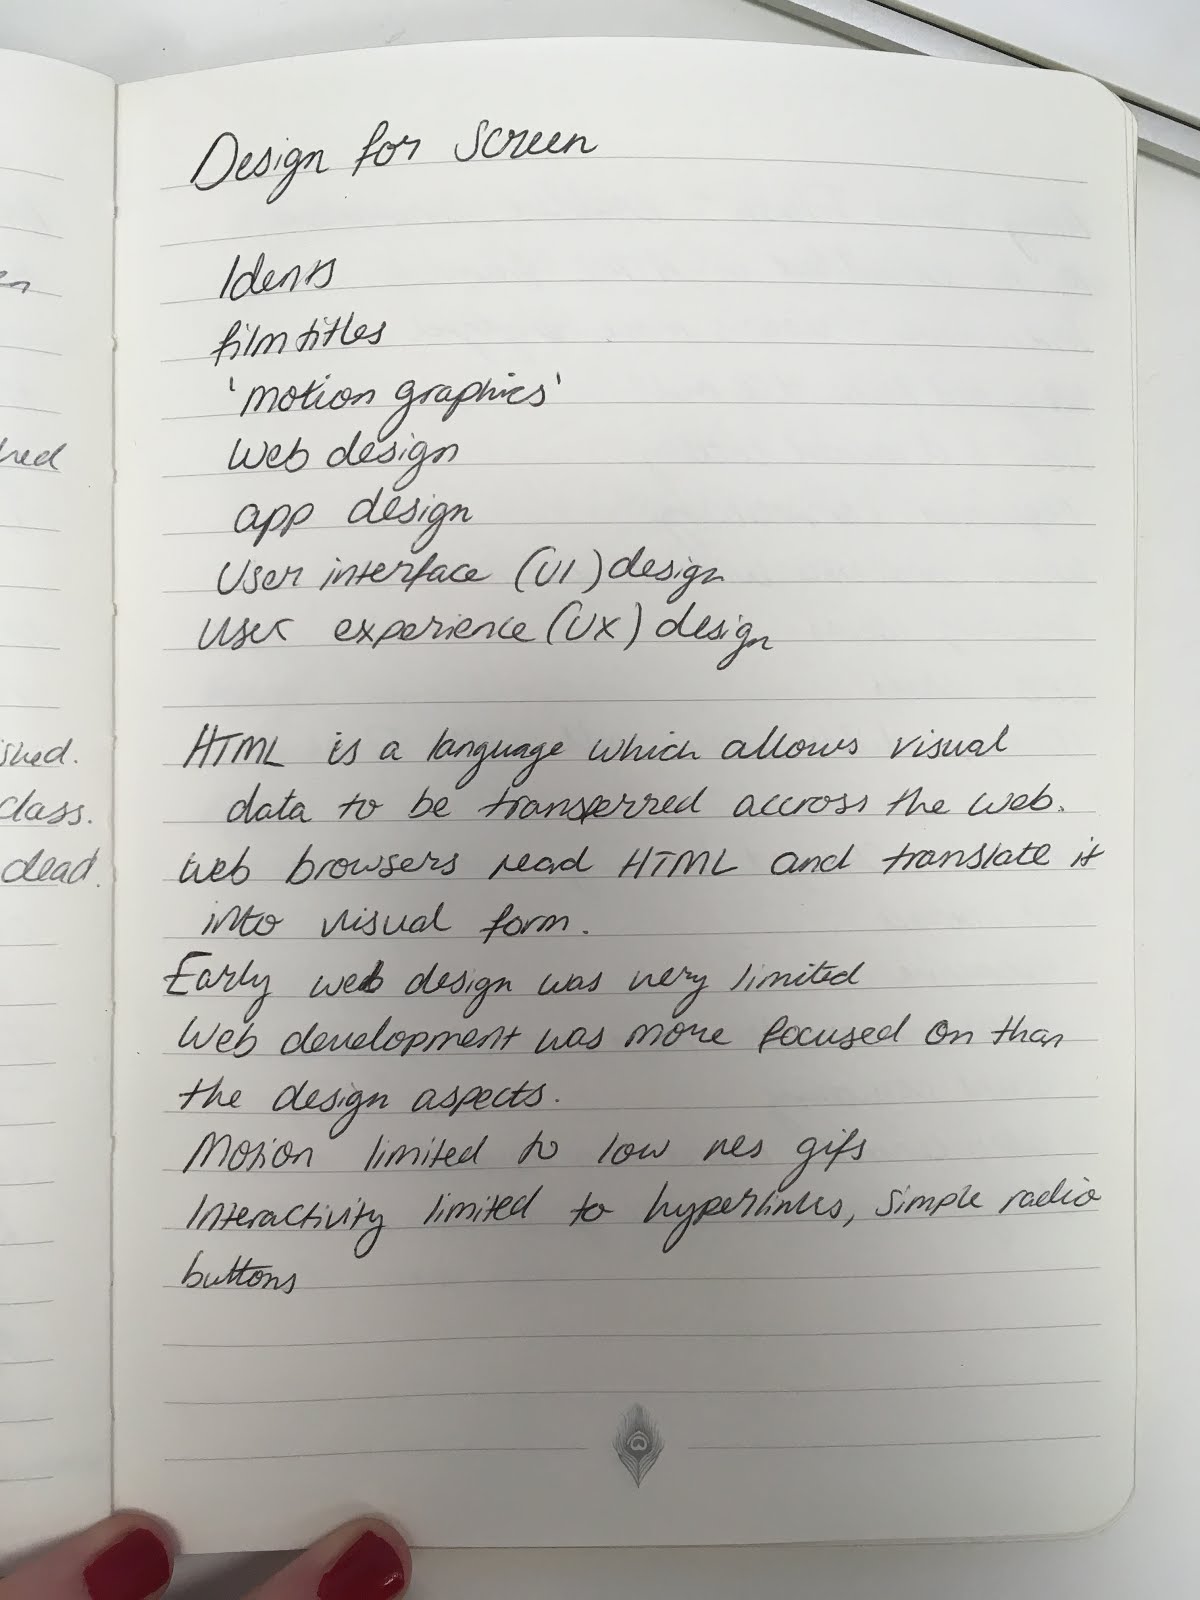 Design for Screen
Idents
film titles
'motion graphics'
Web design
app design
User interface (UI) design
User experience (UX) design
HTML is a language which allows visual
data to be transferred accross the web.
web browsers read HTML and translate it
into visual form.
Early web design was very limited
Web development was more focused on than
the design aspects.
Motion limited to low res gifs
Interactivity limited to hyperlinks, simple radio
buttons
class.
dead.